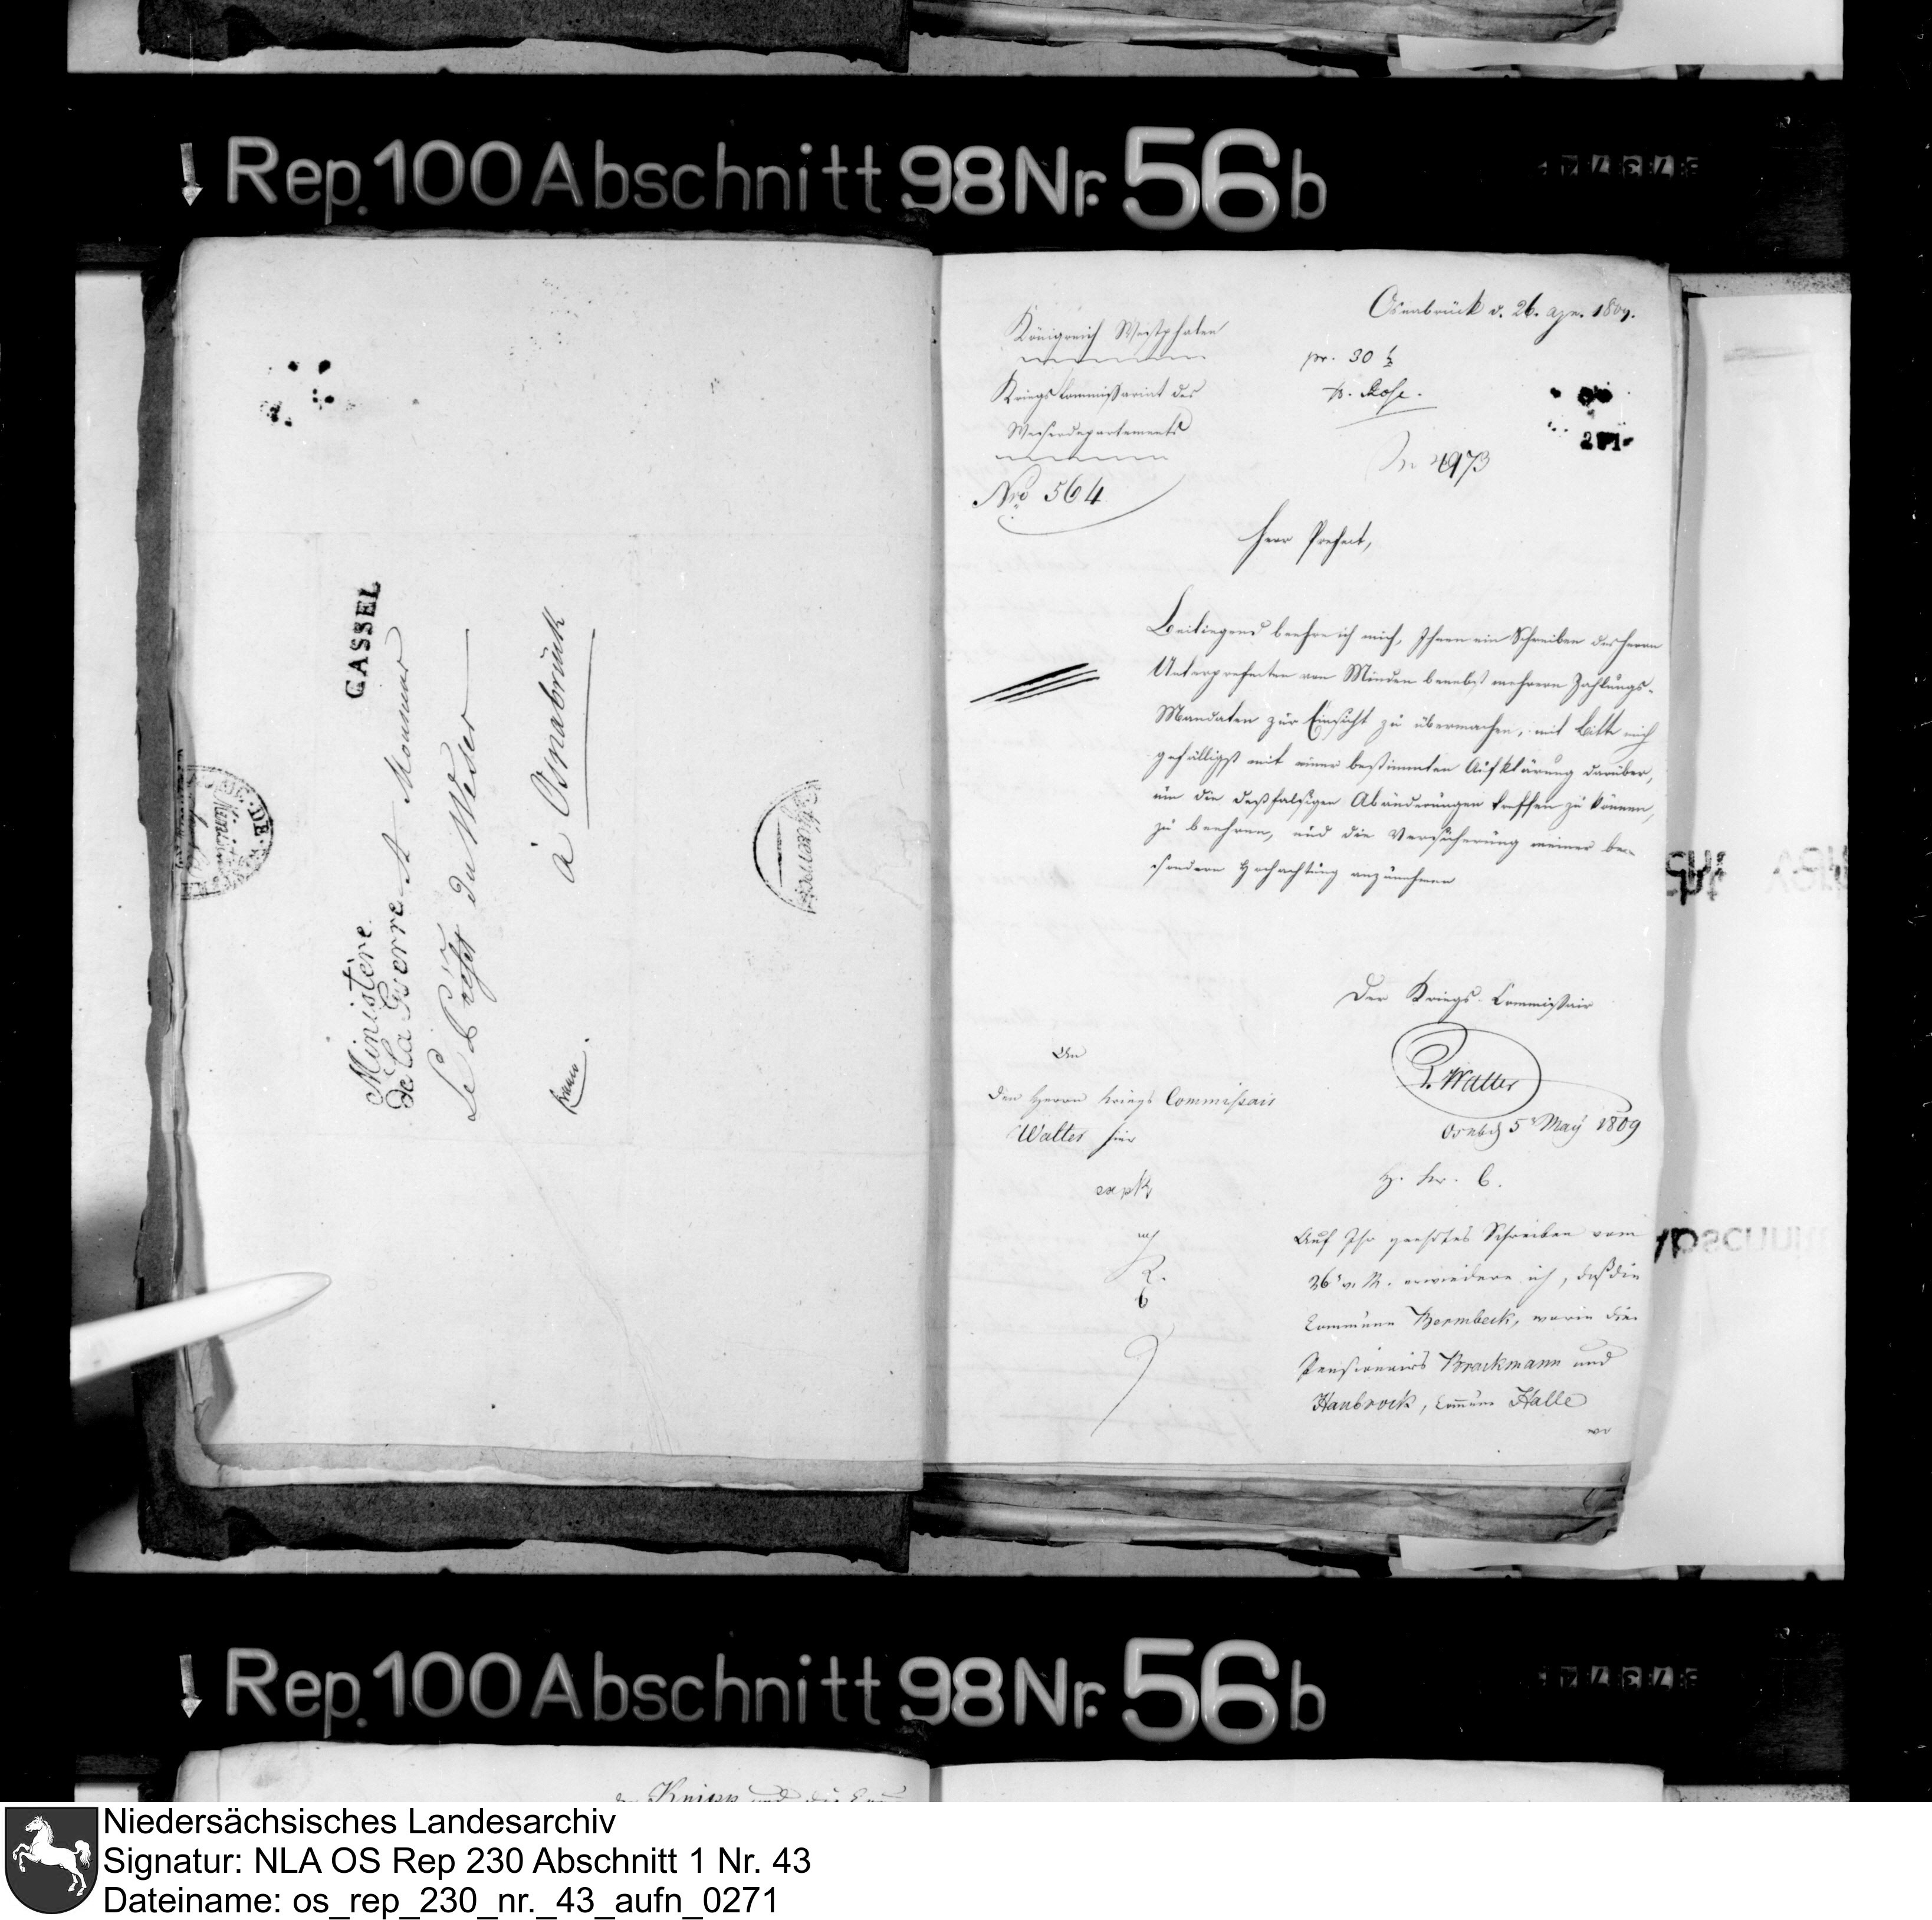 Rep. 100 Abschnitt 98 Nr. 56 b
CASSEL
Ministère
de la Guerre A Monsieur
Le Préfet du Weser
à Osnabrück
Osnabrück d. 26. apr. 1809.
Königreich Westphalen
pr. 30
Kriegs Commissariat des
Weserdepartements
4973
Nro 564
Herr Prefect,
Beiliegend beehre ich mich, Ihnen ein Schreiben des Herrn
Unterprefecten von Minden benebst mehrern Zahlungs-
Mandaten zur Einsicht zu übermachen, mit Bitte mich
gefälligst mit einer bestimmten Aufklärung darüber,
um die deßfalsigen Abänderungen treffen zu können,
zu beehren, und die Versicherung meiner be-
sondern Hochachtung anzunehmen
Der Kriegs-Commissair
Walter
An
den Herrn Kriegs Commissair
Walter hier
Osnbck 5t May 1809
H. Kr. C.
Auf Ihr geehrtes Schreiben vom
26t v. M. erwiedere ich, daß die
Commune Bermbeck, worin die
Pensionairs Brackmann und
Hanbrock, Commune Halle
wo
Rep. 100 Abschnitt 98 Nr. 56 b
Knipp und die
Niedersächsisches Landesarchiv
Signatur: NLA OS Rep 230 Abschnitt 1 Nr. 43
Dateiname: os_rep_230_nr._43_aufn_0271